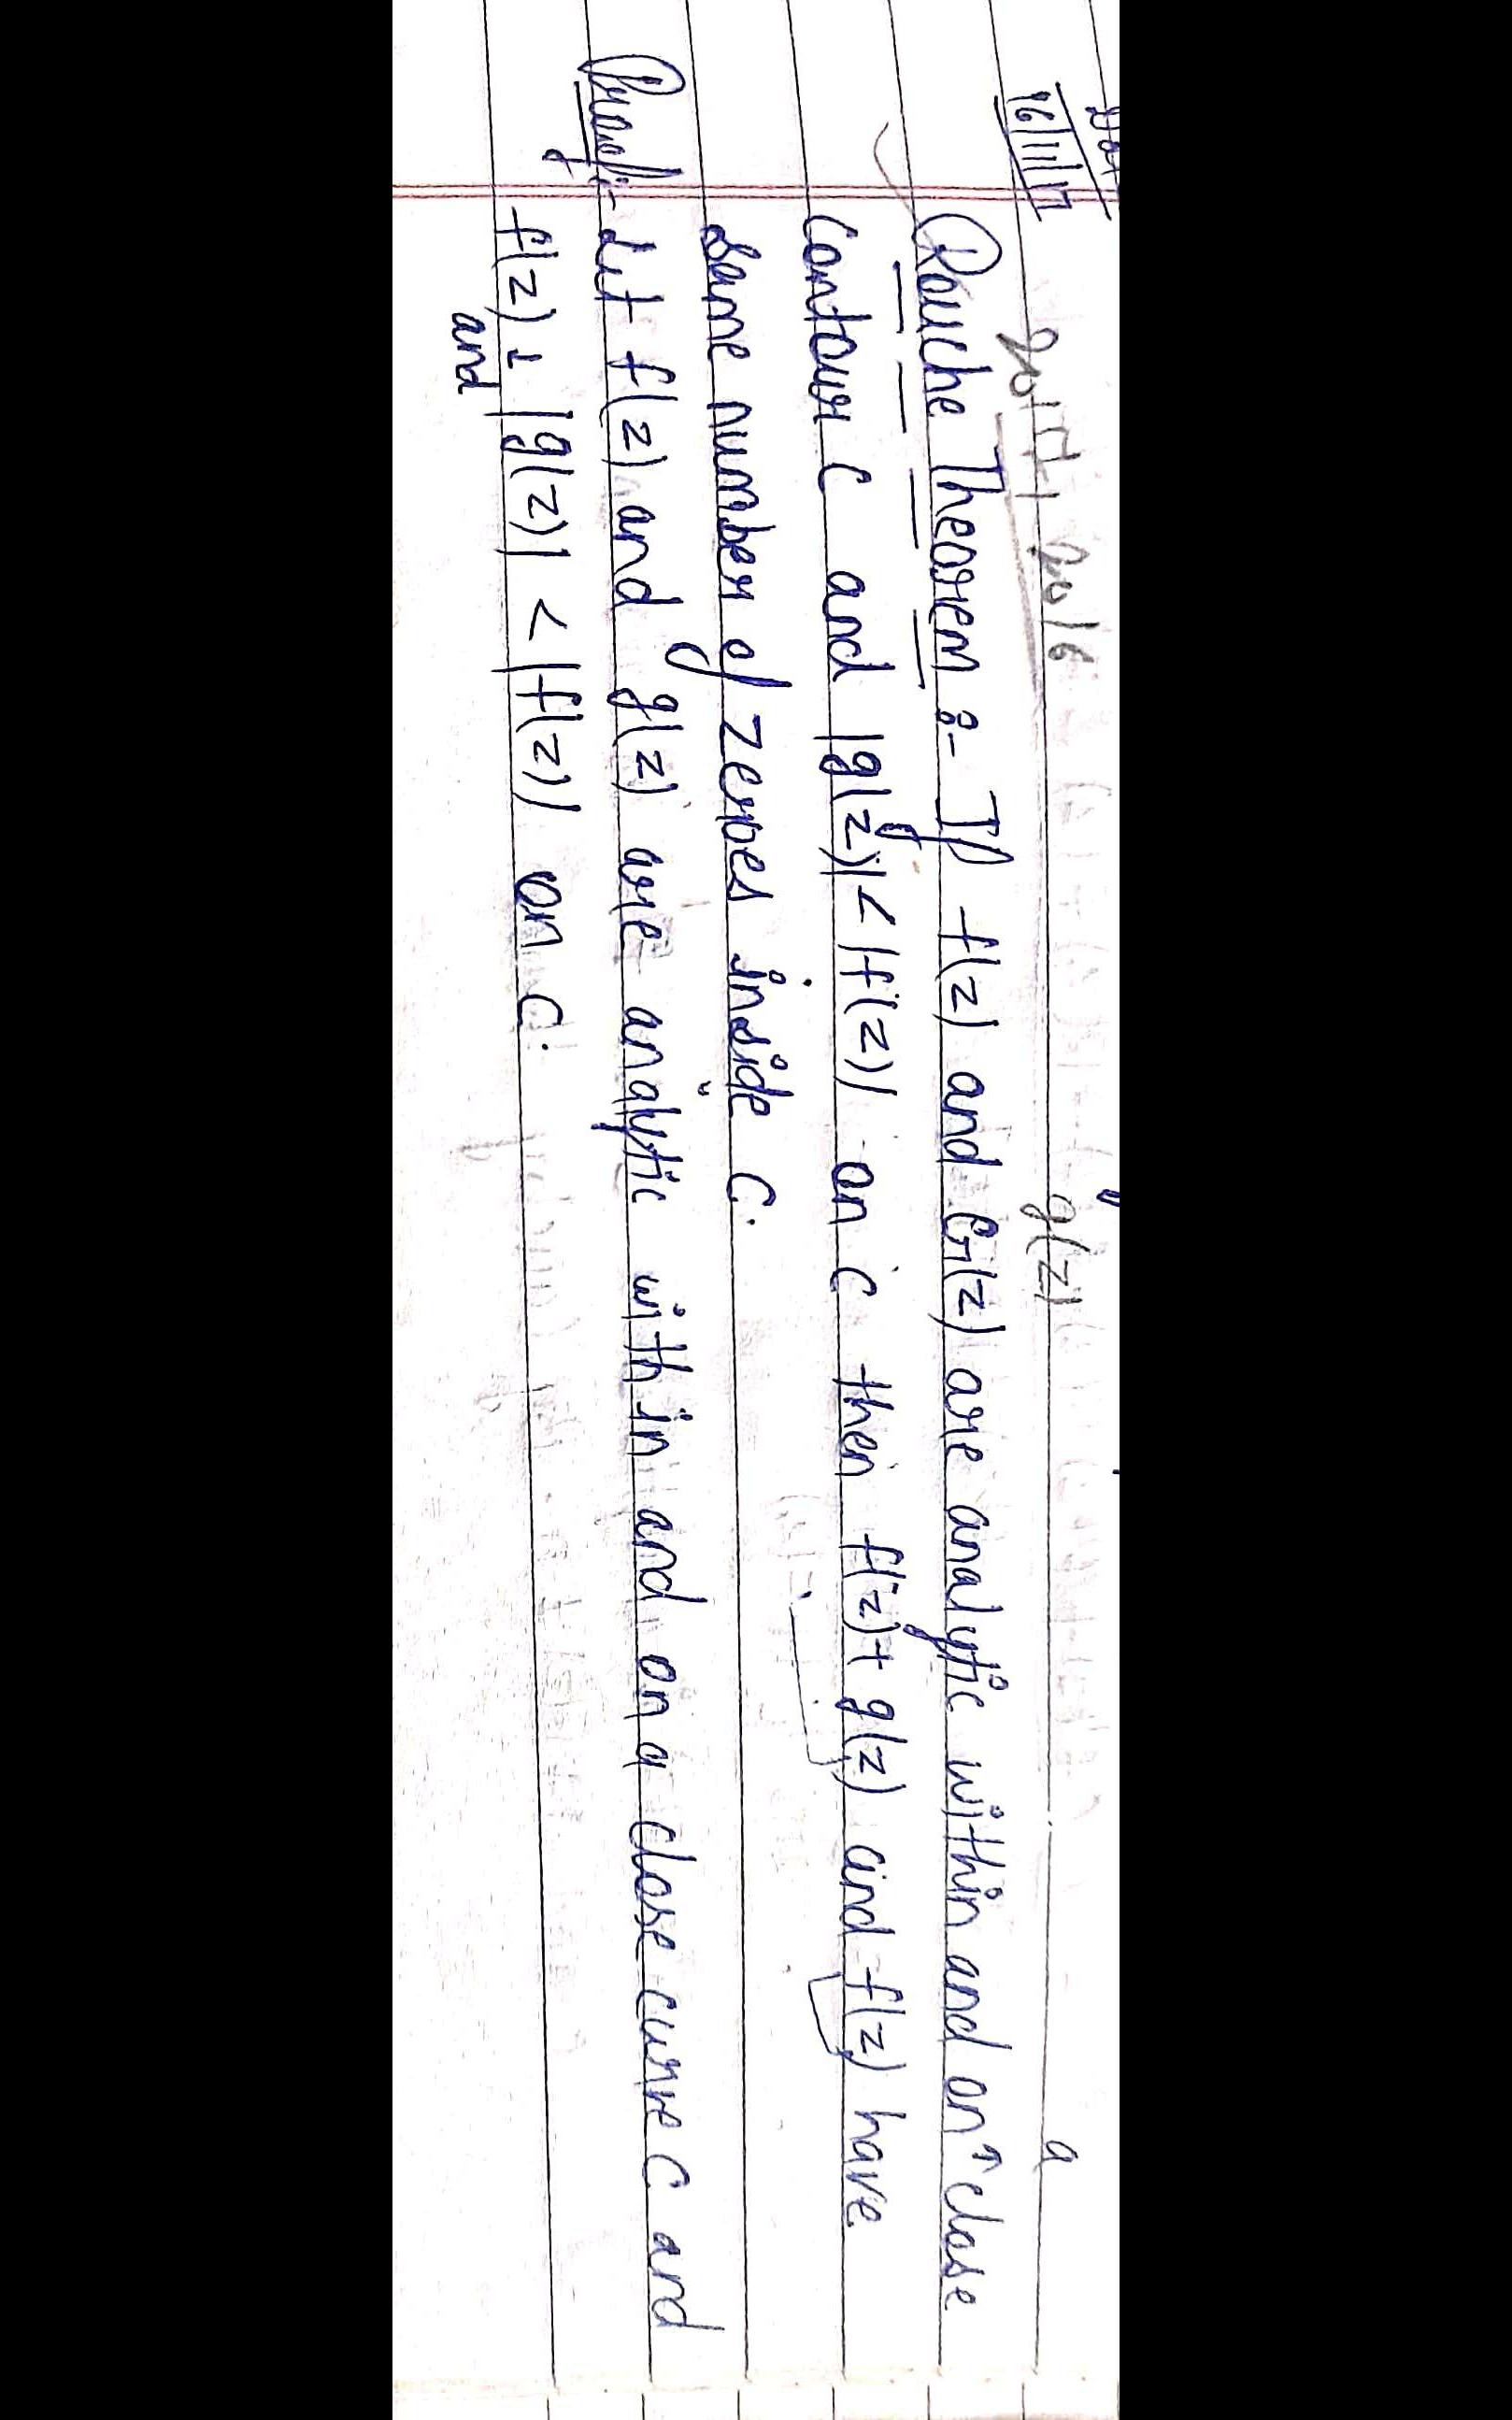 16/11/17
2017, 2016 g(z) a
Rouche Theorem :- If f(z) and G(z) are analytic within and on ^ close
Contour C and |g(z)| < |f(z)| on C then f(z) + g(z) and f(z) have
Same number of zeroes inside C.
Proof:- Let f(z) and g(z) are analytic within and on a close curve C and
f(z) ± |g(z)| < |f(z)| on C.
and